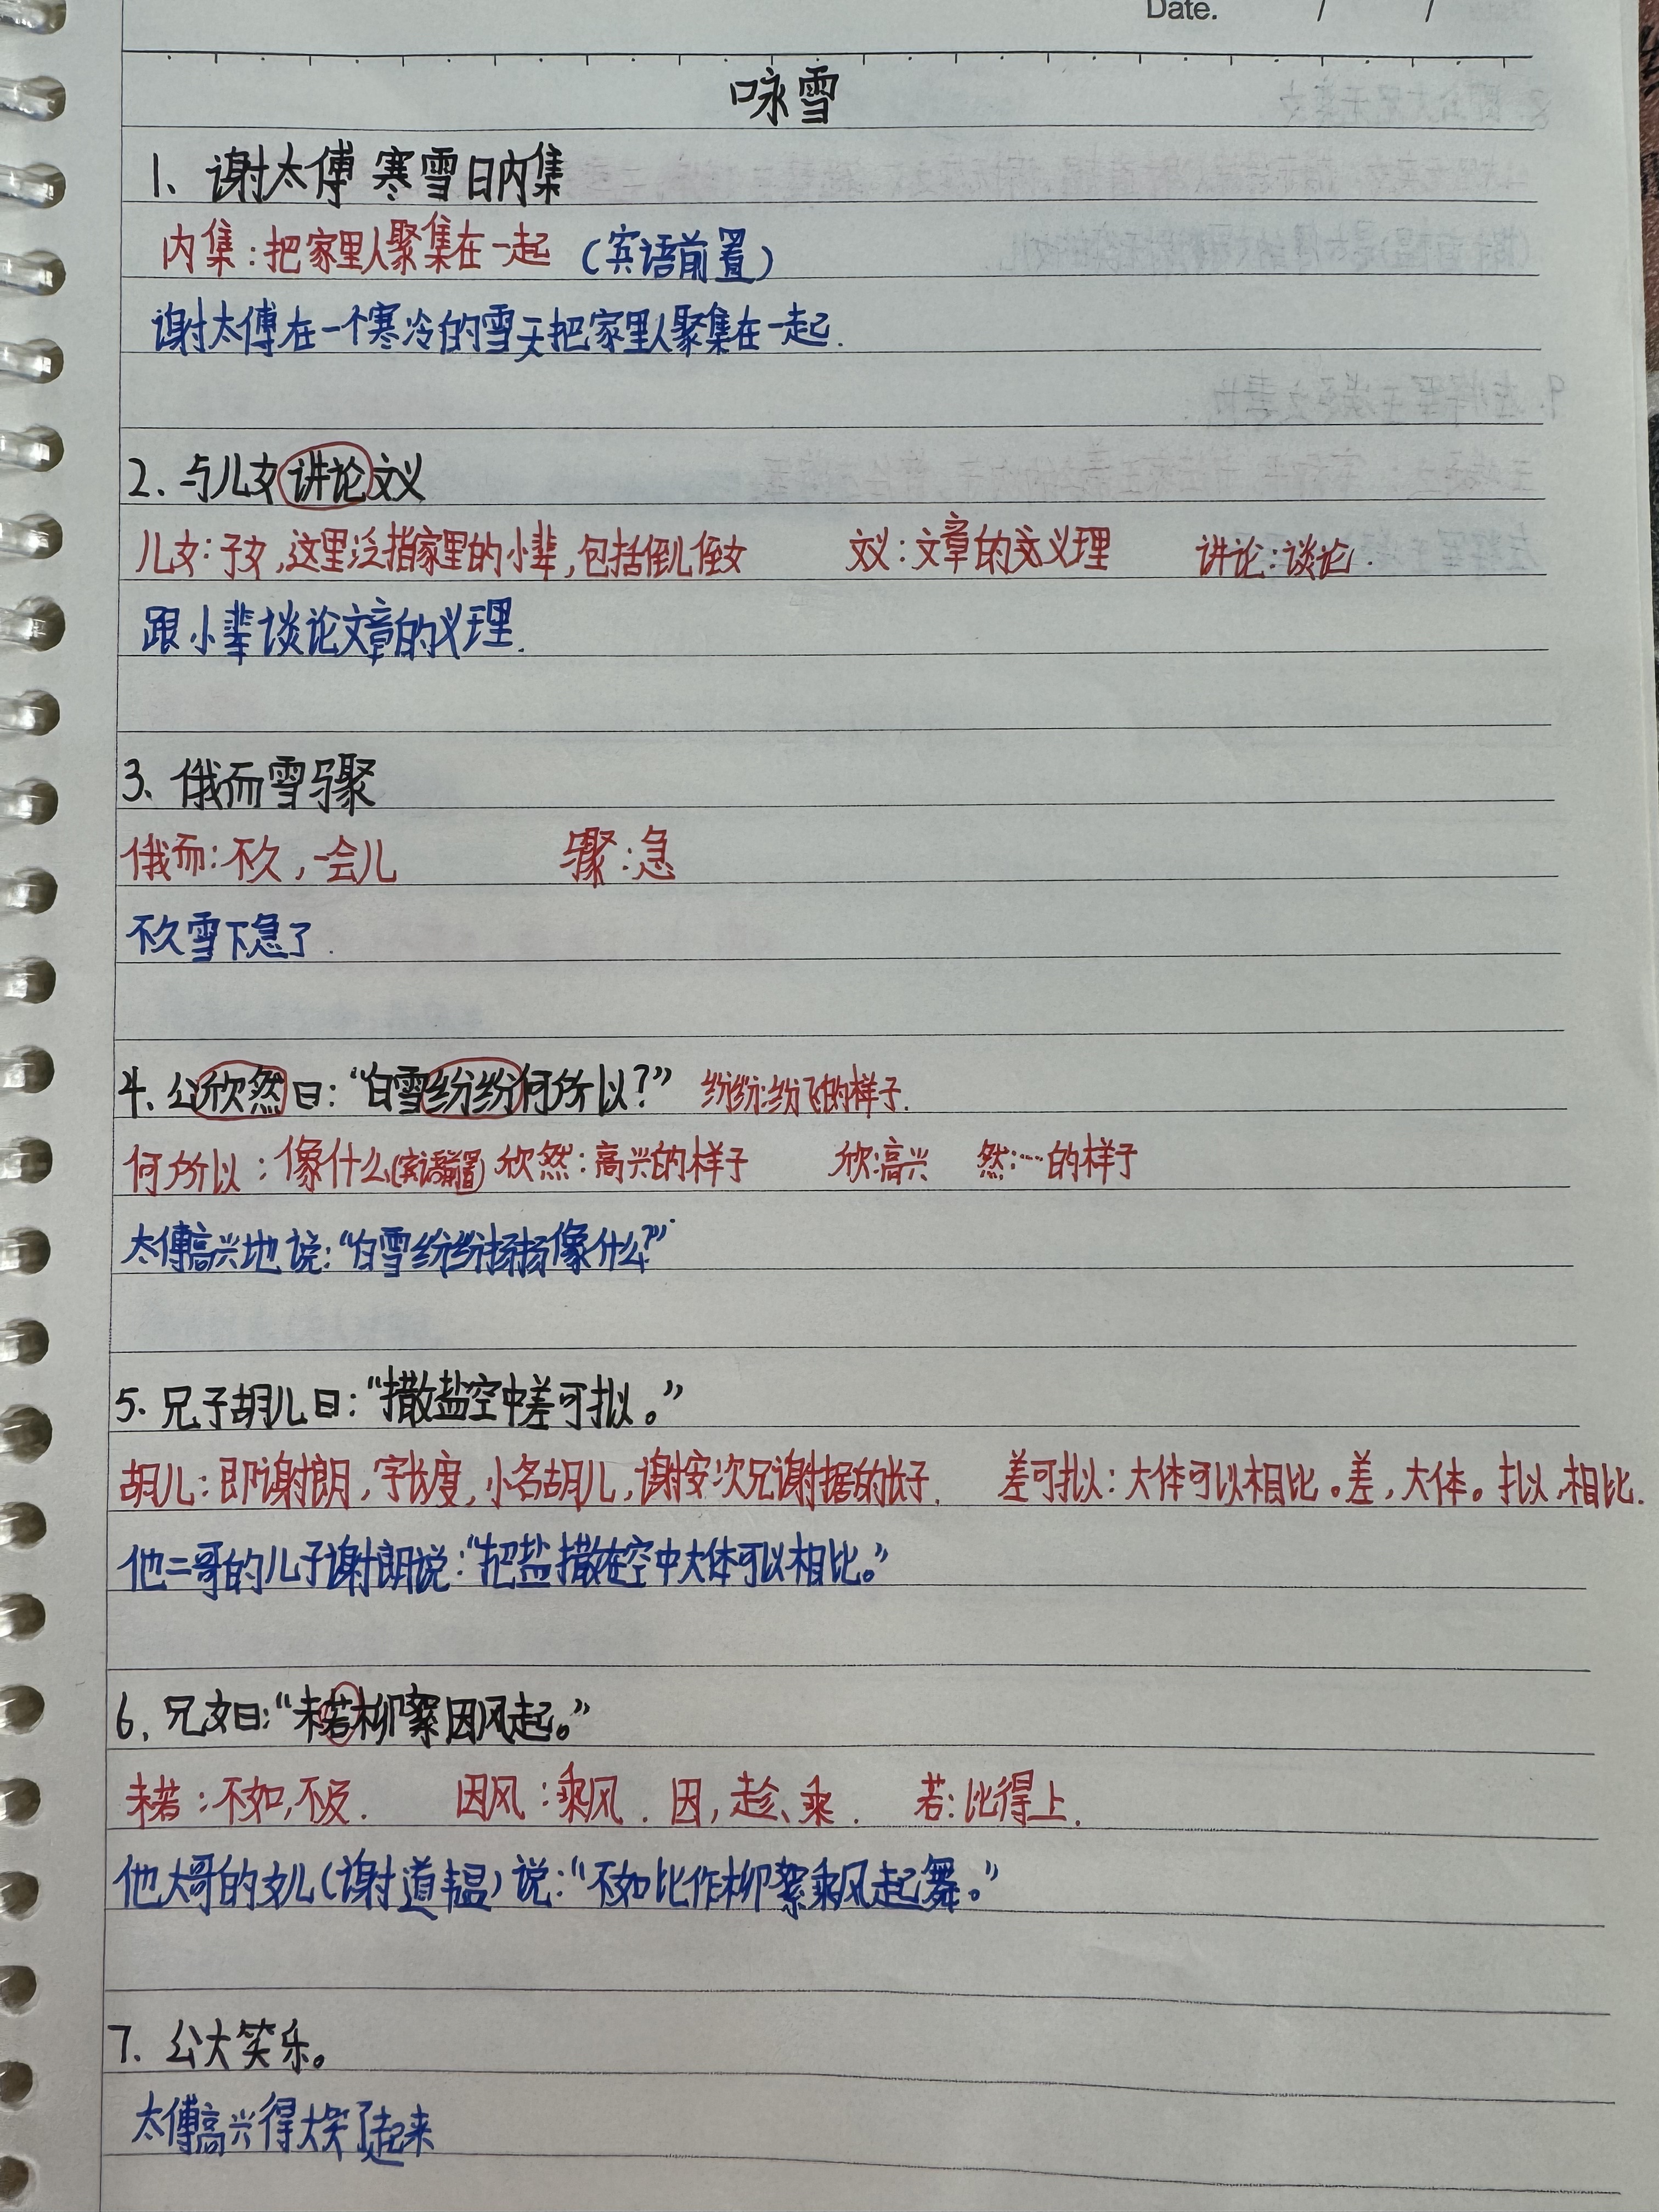 Date. / /
咏雪
1、谢太傅寒雪日内集
内集：把家里人聚集在一起（宾语前置）
谢太傅在一个寒冷的雪天把家里人聚集在一起.
2. 与儿女讲论文义
儿女：子女,这里泛指家里的小辈,包括侄儿侄女 文义：文章的义理 讲论：谈论.
跟小辈谈论文章的义理.
3、俄而雪骤
俄而：不久,一会儿 骤：急
不久雪下急了.
4、公欣然曰：“白雪纷纷何所以？” 纷纷：纷飞的样子.
何所以：像什么(宾语前置) 欣然：高兴的样子 欣：高兴 然：…的样子
太傅高兴地说：“白雪纷纷扬扬像什么？”
5. 兄子胡儿曰：“撒盐空中差可拟。”
胡儿：即谢朗,字长度,小名胡儿,谢安次兄谢据的长子. 差可拟：大体可以相比。差,大体。拟,相比.
他二哥的儿子谢朗说：“把盐撒在空中大体可以相比。”
6. 兄女曰：“未若柳絮因风起。”
未若：不如,不及. 因风：乘风. 因,趁、乘. 若：比得上.
他大哥的女儿(谢道韫)说：“不如比作柳絮乘风起舞。”
7. 公大笑乐。
太傅高兴得大笑了起来